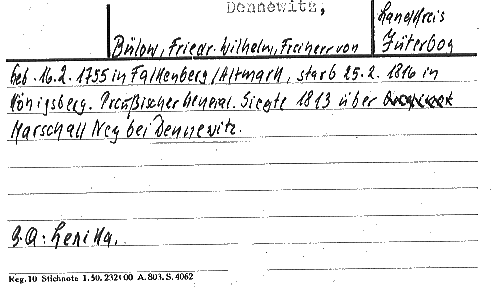 Dennewitz,
Landkreis
Bülow, Friedr. Wilhelm, Freiherr von
Jüterbog
geb. 16.2. 1755 in Falkenberg/Altmark, starb 25.2. 1816 in
Königsberg. Preußischer General. Siegte 1813 über
Marschall Ney bei Dennewitz.
Reg. 10 Stichnote 1. 50. 232t00 A. 803. S. 4062